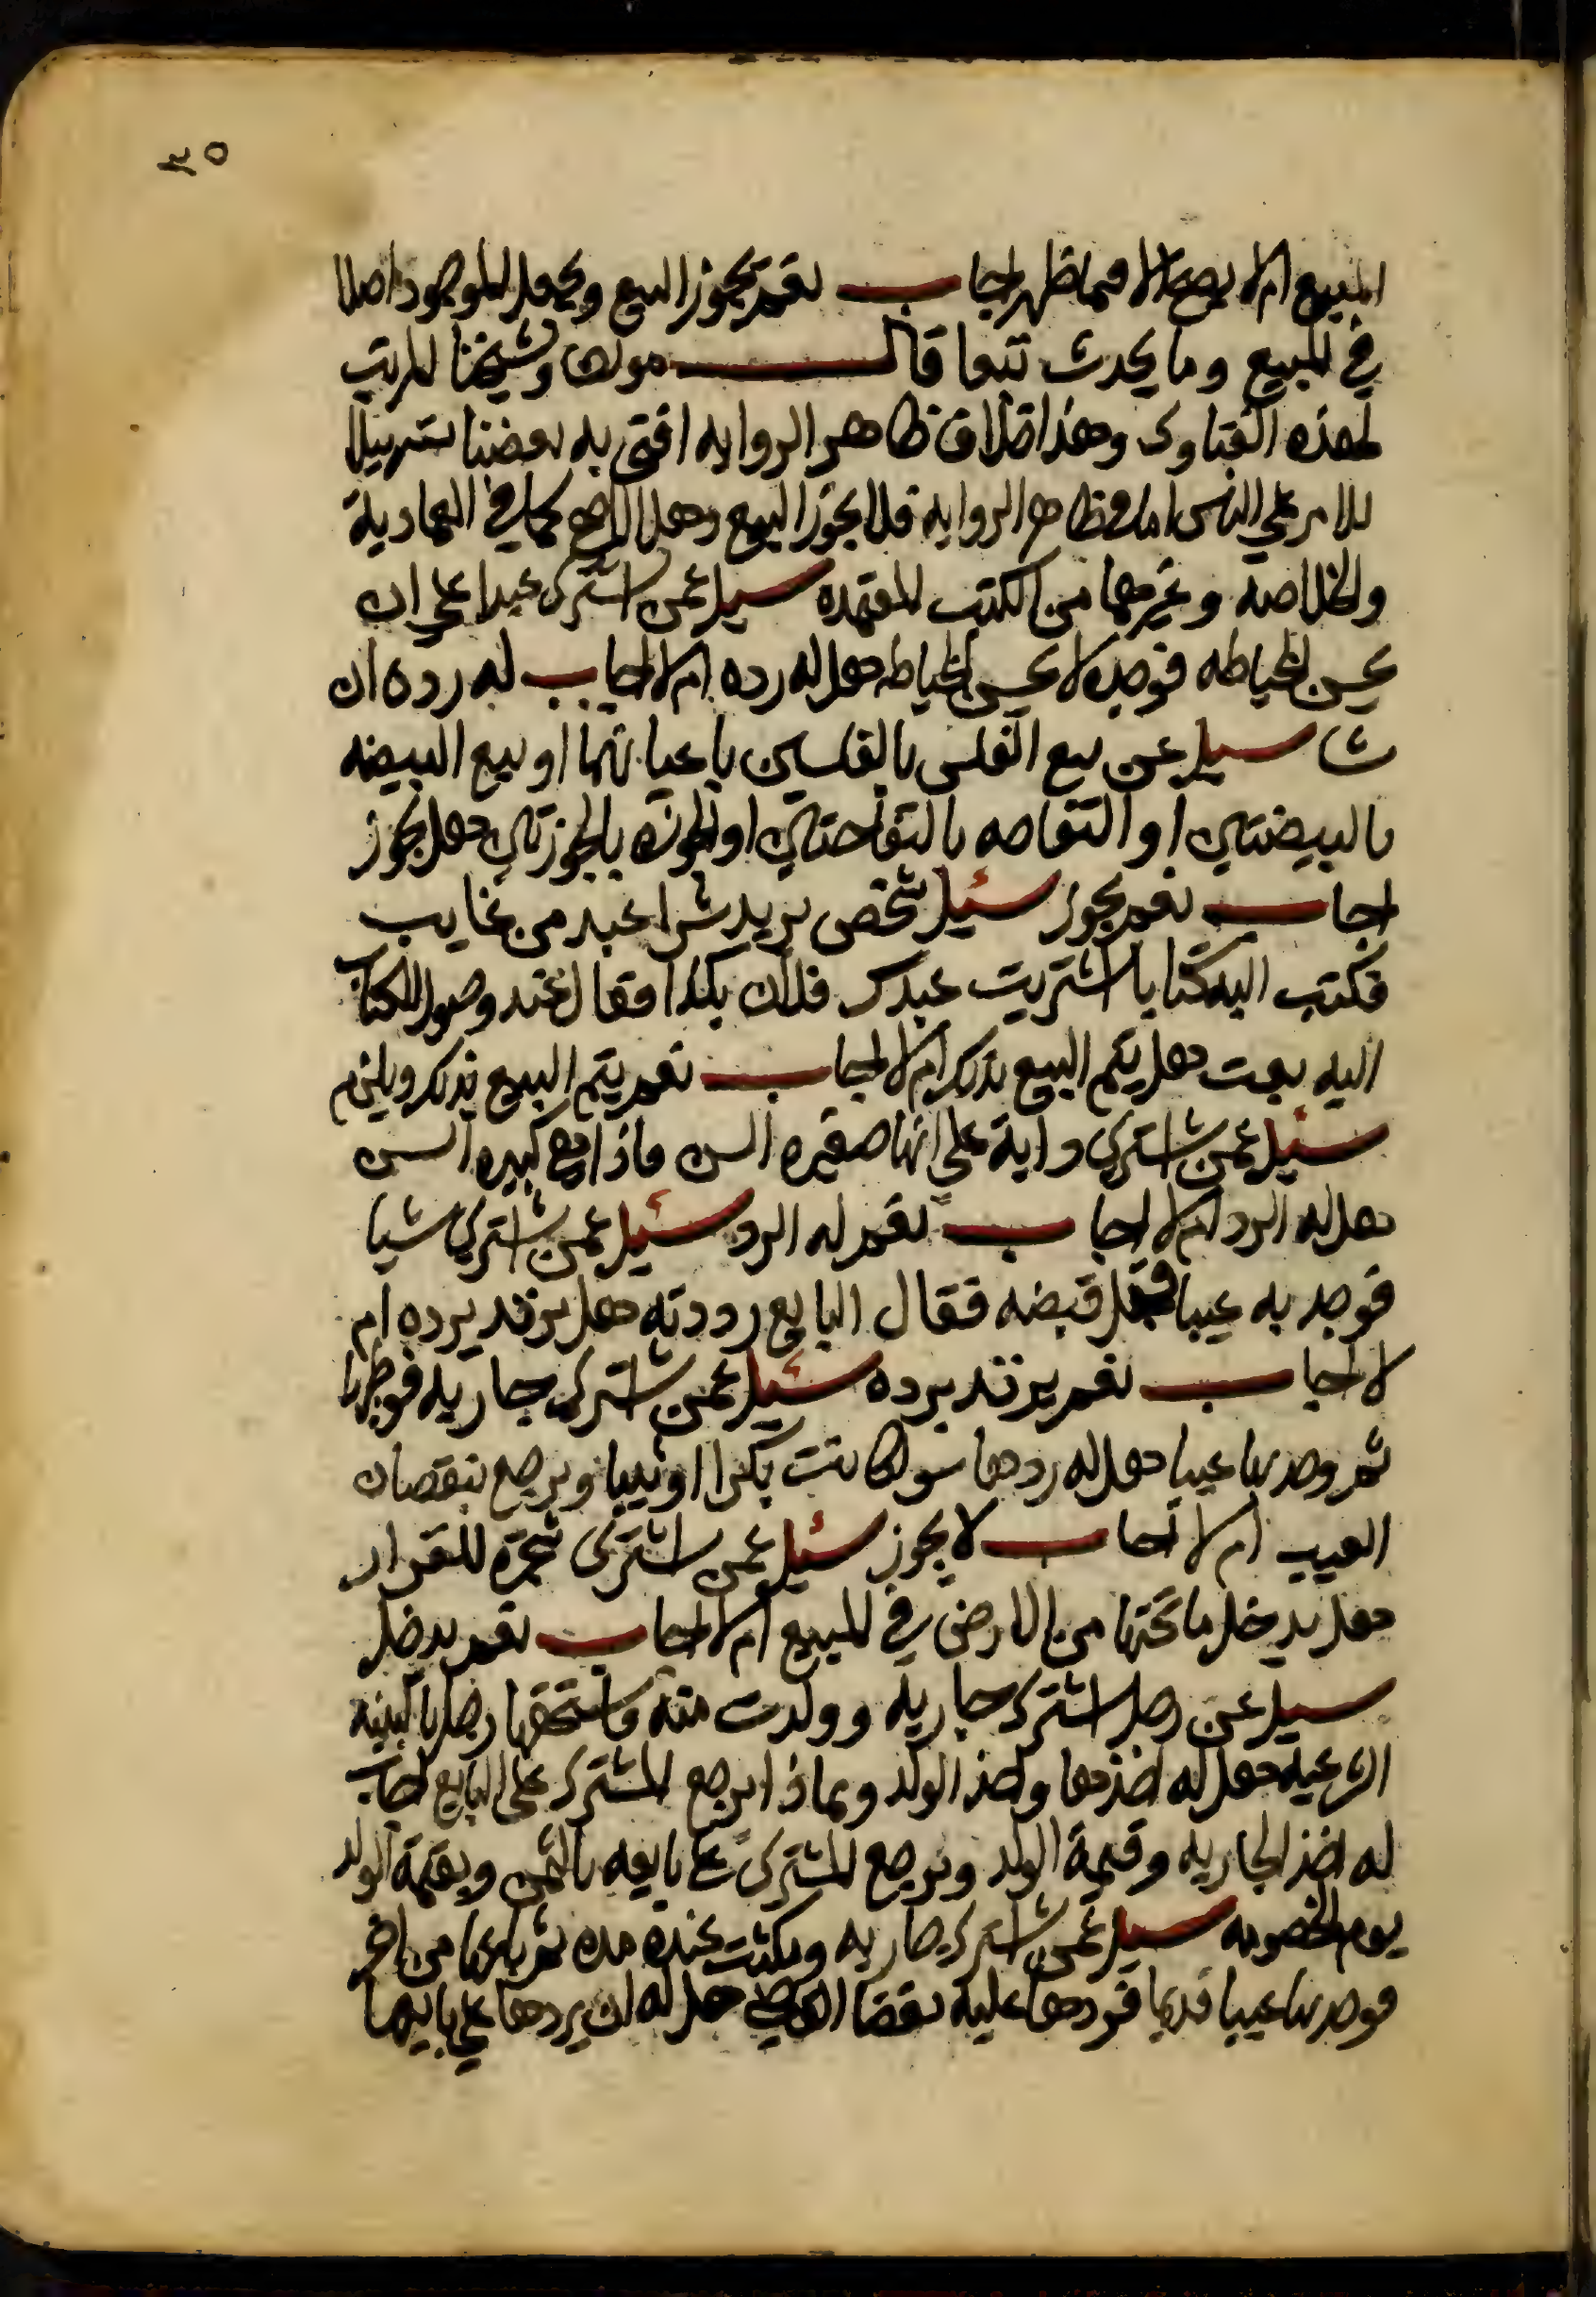 ٣٥
المبيع ام لا يصح الا فيما ظهر اجاب نعم يجوز البيع ويجعل الموجود اصلا
في المبيع وما يحدث تبعا قال مولانا وشيخنا المرتب
لهذه الفتاوى وهذا خلاف ظاهر الروايه افتى به بعضنا تسهيلا
للامر على الناس اما في ظاهر الرواية فلا يجوز البيع وهو الاصح كما في العمادية
والخلاصه وغيرهما من الكتب المعتمده سيل عمن اشترى عبدا على ان
يحسن الخياطه فوجده لا يحسن الخياطه هل له رده ام لا اجاب له رده ان
شا سيل عن بيع الفلس بالفلسين باعيانهما او بيع البيضه
بالبيضتين او التفاحه بالتفاحتين او الجوزه بالجوزتين هل يجوز
اجاب نعم يجوز سئيل شخص يريد شرا عبد من غايب
فكتب اليه كتابا اشتريت عبدك فلان بكذا فقال عند وصول الكتاب
اليه بعت هل يتم البيع بذلك ام لا اجاب نعم يتم البيع بذلك ويلزم
سئيل عمن اشترى دابة على انها صغيره السن فاذا هي كبيره السن
هل له الرد ام لا اجاب نعم له الرد سئيل عمن اشترى شيا
فوجد به عيبا قبل قبضه فقال البايع رددته هل يرتد برده ام
لا اجاب نعم يرتد برده سئيل عمن اشترى جاريه فوطيها
ثم وجد بها عيبا هل له ردها سوا كانت بكرا او ثيبا ويرجع بنقصان
العيب ام لا اجاب لا يجوز سئيل عمن اشترى شجرة للقرار
هل يدخل ما تحتها من الارض في المبيع ام لا اجاب نعم يدخل
سيل عن رجل اشترى جاريه وولدت منه فاستحقها رجل بالبينه
الشرعيه هل له اخذها واخذ الولد وبماذا يرجع المشترى على البايع اجاب
له اخذ الجاريه وقيمة الولد ويرجع المشترى على بايعه بالثمن وبقيمة الولد
يوم الخصومه سيل عمن اشترى جاريه ومكثت عنده مده ثم باعها من اخر
فوجد بها عيبا قديما فردها عليه بقضا القاضي هل له ان يردها على بايعها